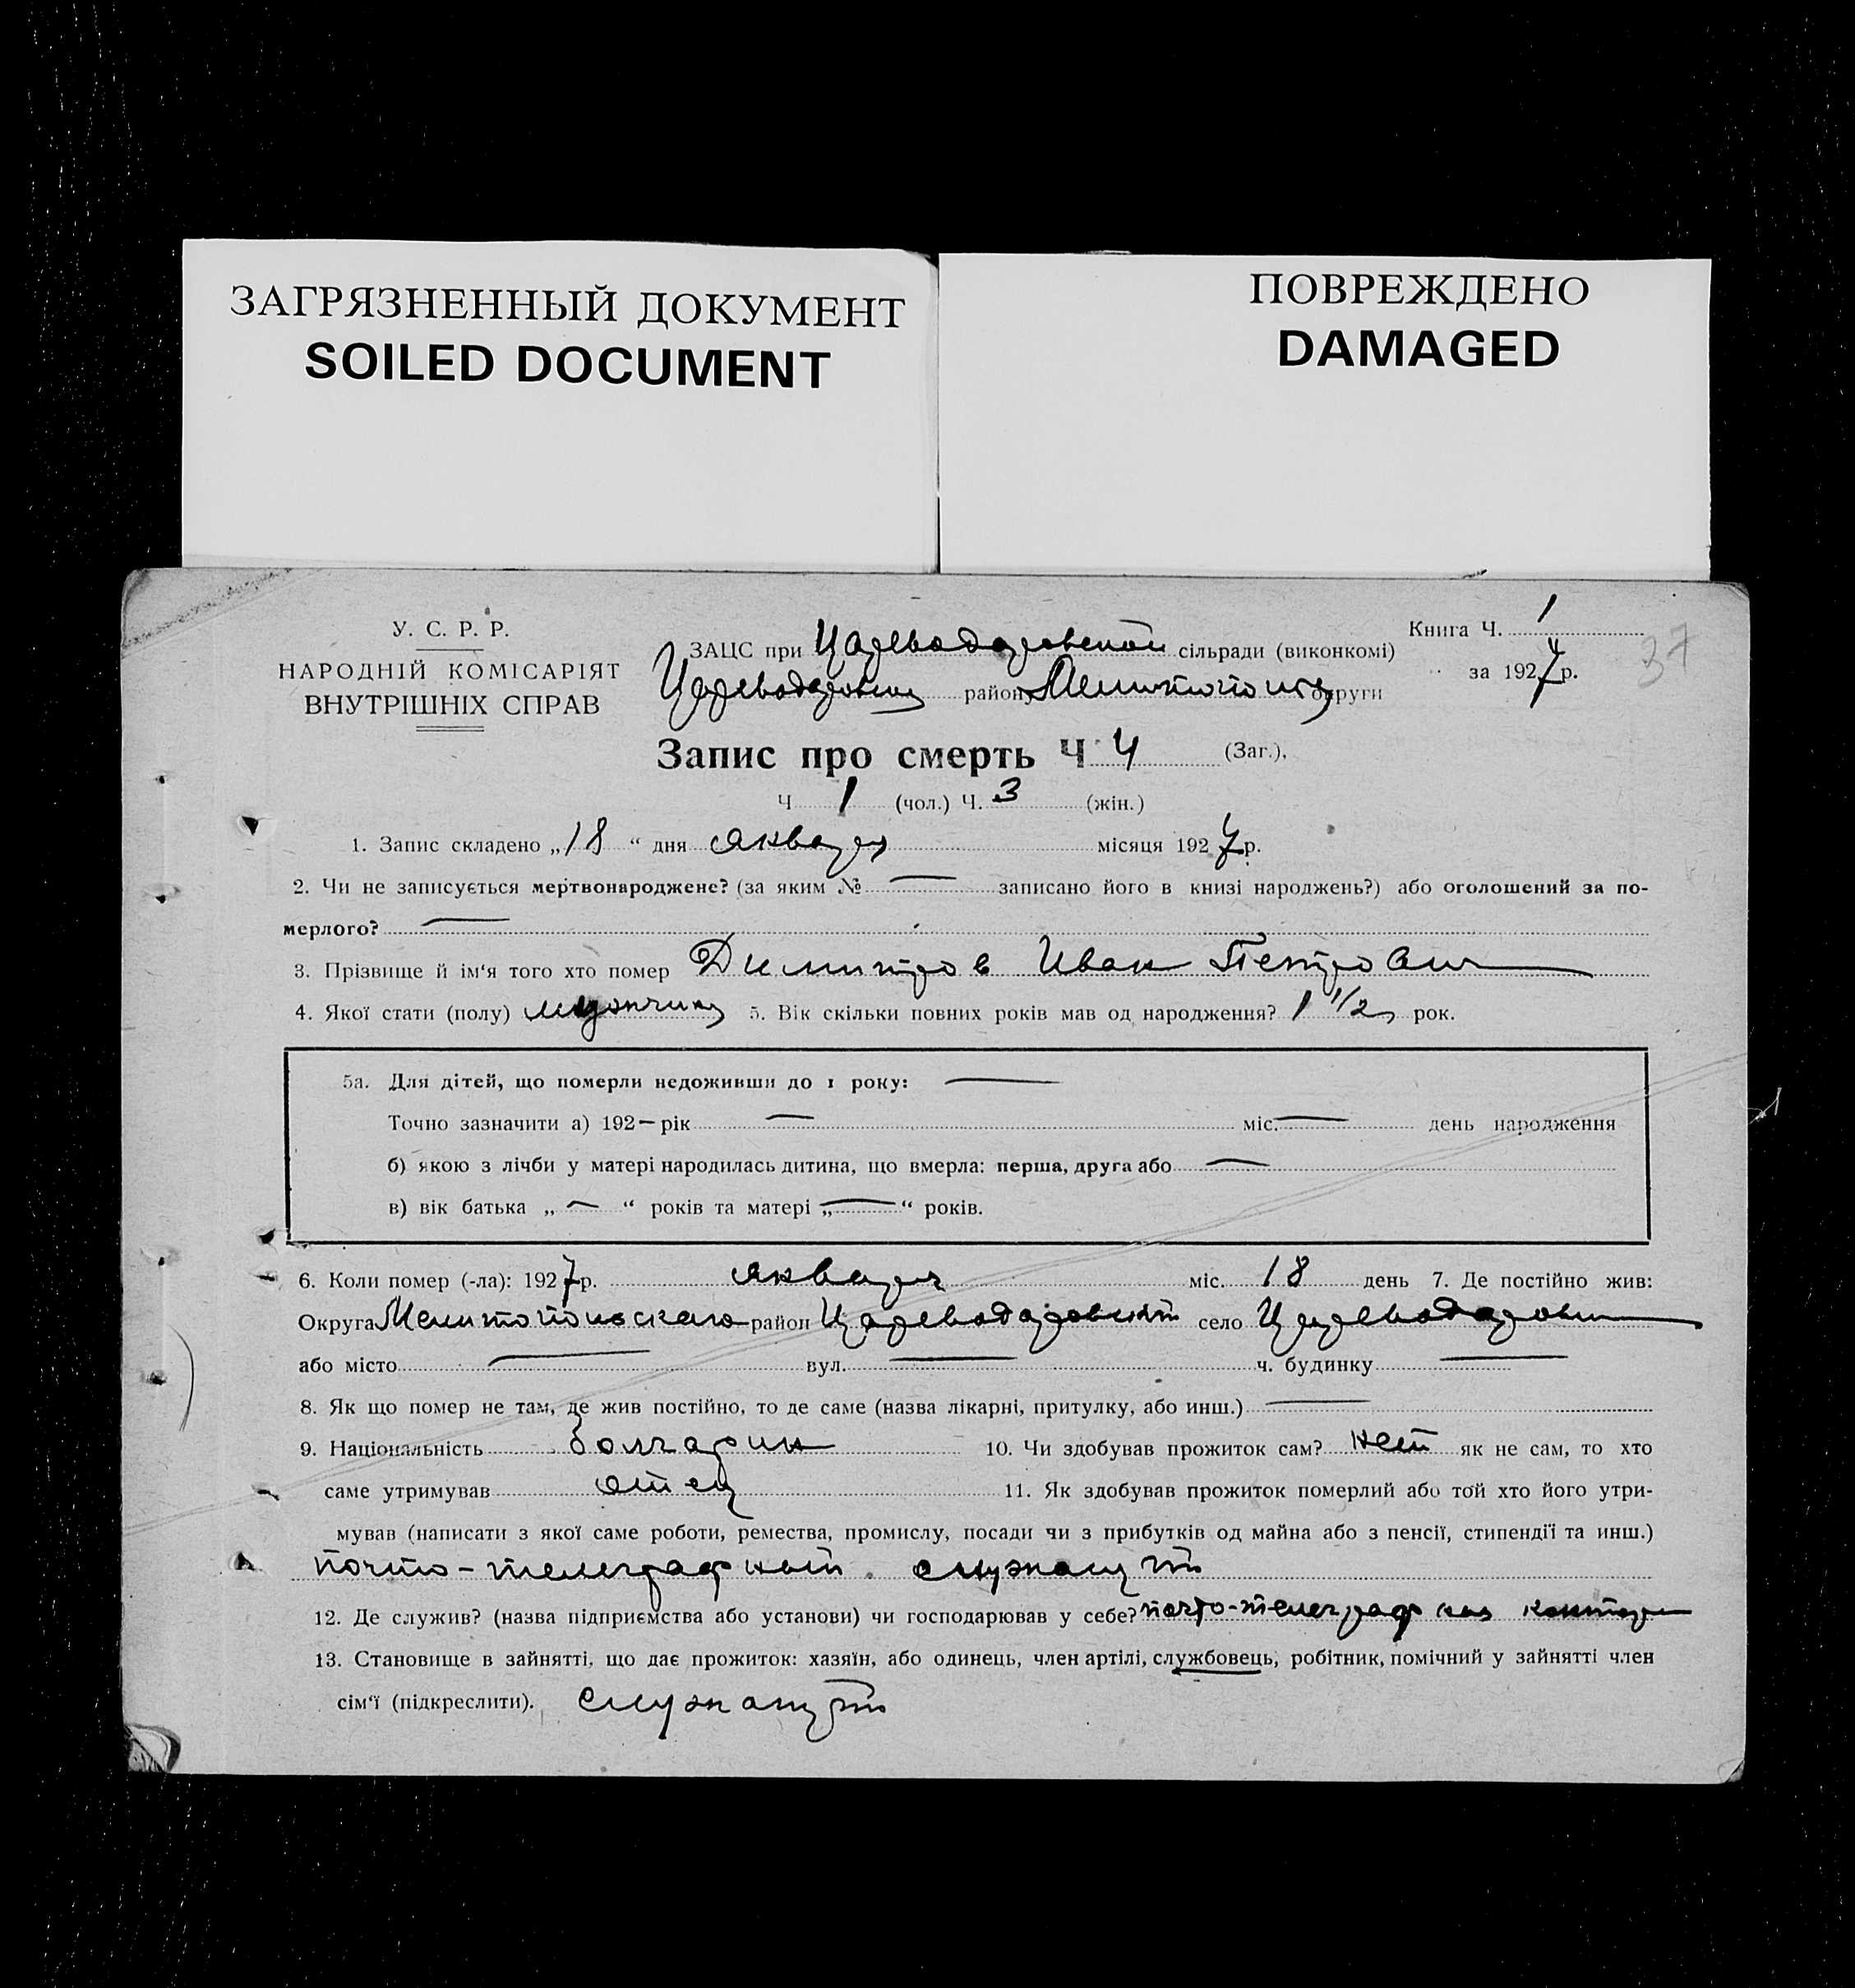 ЗАГРЯЗНЕННЫЙ ДОКУМЕНТ
SOILED DOCUMENT
ПОВРЕЖДЕНО
DAMAGED
У. С. Р. Р.
НАРОДНІЙ КОМІСАРІЯТ
ВНУТРІШНІХ СПРАВ
Книга Ч. 1
за 1927 р.
37
ЗАЦС при Цареводаровской сільради (виконкомі)
району округи
Запис про смерть Ч 4 (Заг.),
Ч 1 (чол.) Ч. 3 (жін.)
1. Запис складено „18“ дня января місяця 1927 р.
2. Чи не записується мертвонароджене? (за яким № — записано його в книзі народжень?) або оголошений за по-
мерлого? —
3. Прізвище й ім‘я того хто помер Димитров Иван Петрович
4. Якої стати (полу) мужчина 5. Вік скільки повних років мав од народження? 1 1/2 рок.
5а. Для дітей, що померли недоживши до 1 року: —
Точно зазначити а) 192— рік — міс. — день народження
б) якою з лічби у матері народилась дитина, що вмерла: перша, друга або —
в) вік батька „—“ років та матері „—“ років.
6. Коли помер (-ла): 1927 р. января міс. 18 день 7. Де постійно жив:
Округа Мелитопольского район Цареводаровский село Цареводаровка
або місто — вул. — ч. будинку —
8. Як що помер не там, де жив постійно, то де саме (назва лікарні, притулку, або инш.) —
9. Національність болгарин 10. Чи здобував прожиток сам? нет як не сам, то хто
саме утримував отец 11. Як здобував прожиток померлий або той хто його утри-
мував (написати з якої саме роботи, ремества, промислу, посади чи з прибутків од майна або з пенсії, стипендії та инш.)
почто-телеграфный служащий
12. Де служив? (назва підприємства або установи) чи господарював у себе? почто-телеграфная контора
13. Становище в зайнятті, що дає прожиток: хазяїн, або одинець, член артілі, службовець, робітник, помічний у зайнятті член
сім‘ї (підкреслити). служащий